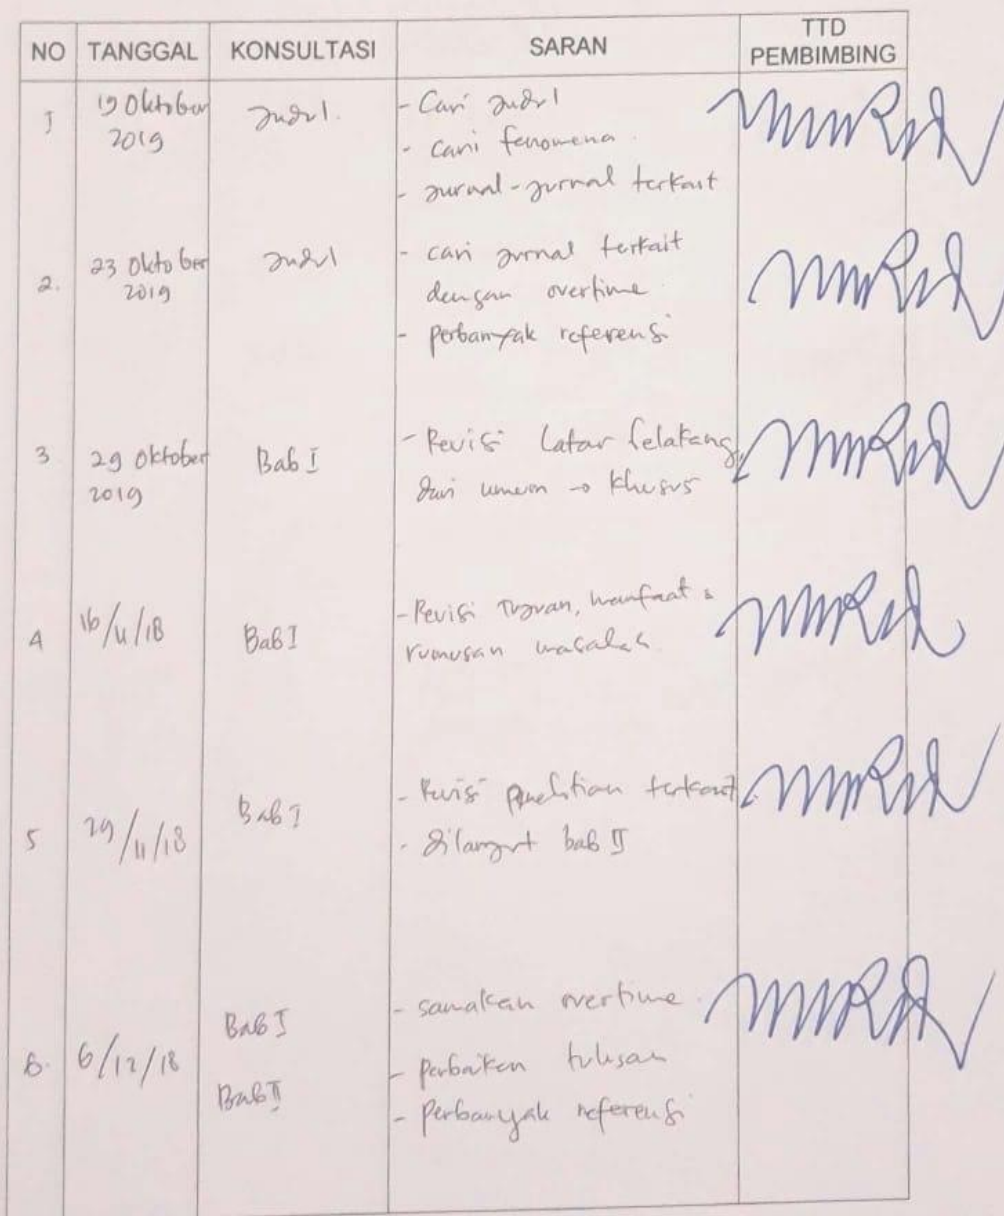 NO TANGGAL KONSULTASI SARAN TTD PEMBIMBING
1 19 Oktober 2019 Judul.
- Cari Judul
- Cari fenomena
- Jurnal-jurnal terkait
2. 23 Oktober 2019 Judul
- cari jurnal terkait
dengan overtime
- perbanyak referensi
3 29 Oktober 2019 Bab I
- Revisi Latar belakang
dari umum → khusus
4 16/11/18 Bab I
- Revisi Tujuan, manfaat &
rumusan masalah
5 29/11/18 Bab I
- Revisi penelitian terkait
- dilanjut bab II
6. 6/12/18 Bab I
Bab II
- samakan overtime
- perbaikan tulisan
- perbanyak referensi